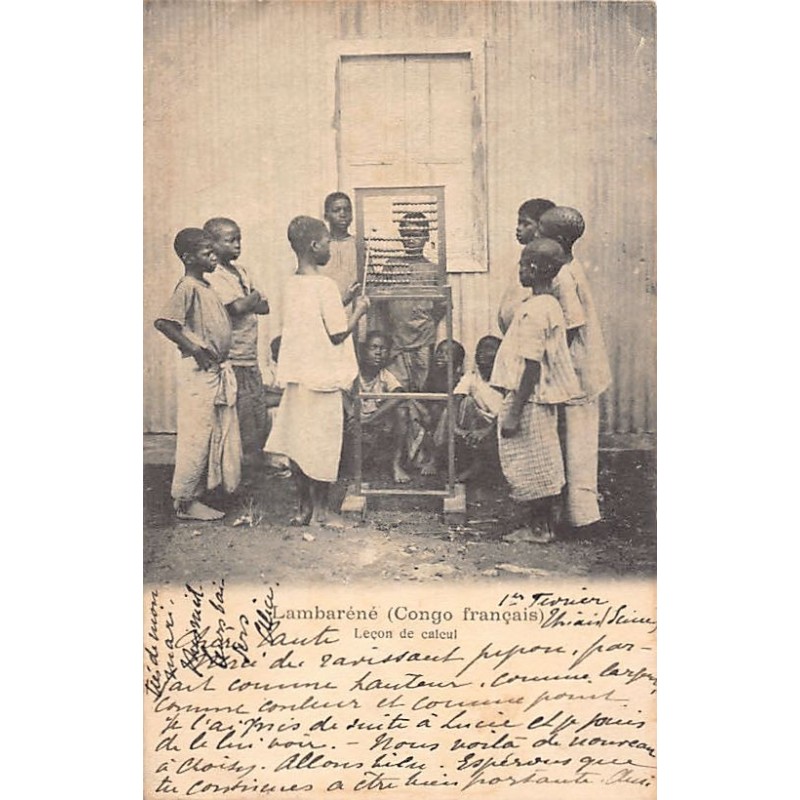 Lambaréné (Congo français)
Leçon de calcul
1er Février
Thiais (Seine)
tante
Merci du ravissant jupon, par-
fait comme hauteur, comme largeur,
comme couleur et comme point.
Je l'ai mis de suite à Lucie et je puis
de le lui voir. - Nous voilà de nouveau
à Choisy. Allons bien. Espérons que
tu continues à être bien portante. Ainsi
mari.
Alice.